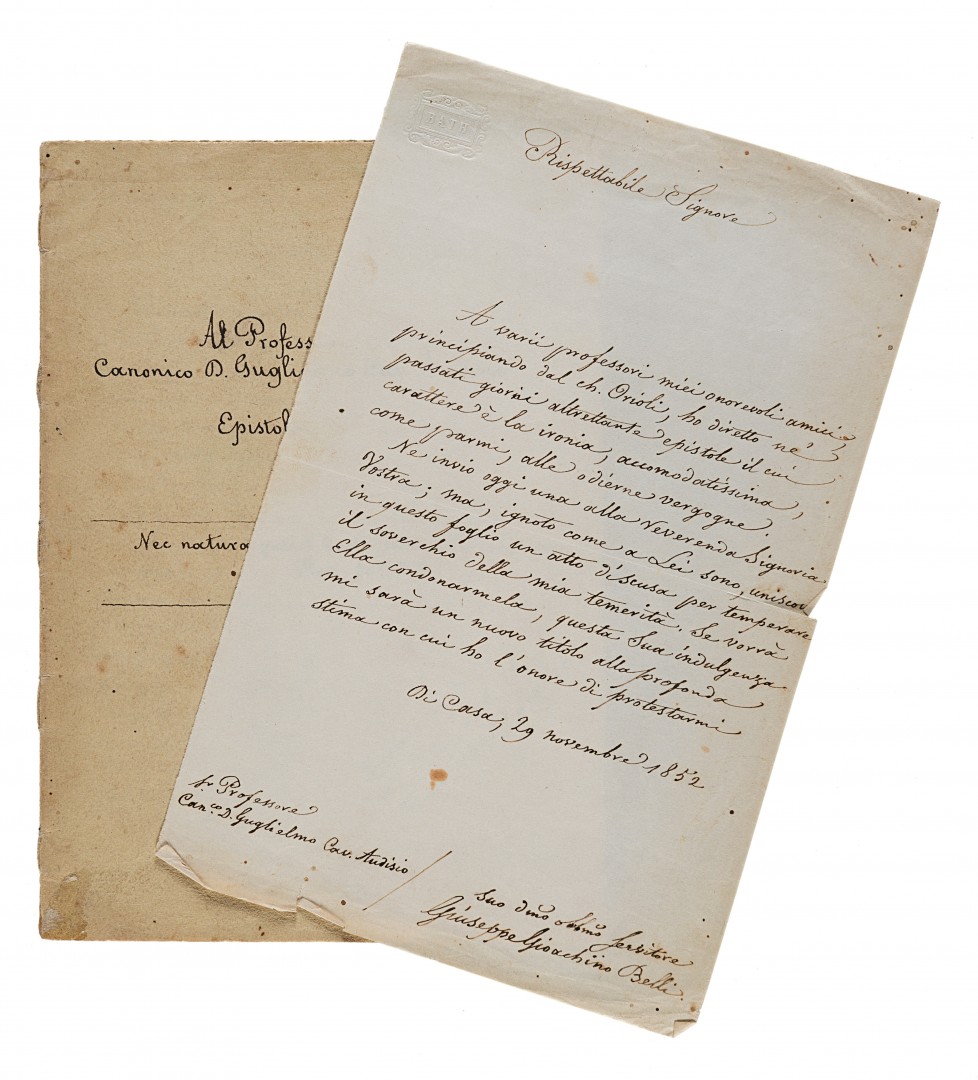 BATH
Rispettabile Signore
A varii professori miei onorevoli amici,
principiando dal ch. Orioli, ho diretto ne'
passati giorni altrettante epistole il cui
carattere è la ironia, accomodatissima,
come parmi, alle odierne vergogne.
Ne invio oggi una alla reverenda Signoria
Vostra; ma, ignoto come a Lei sono, unisco
in questo foglio un atto di scusa per temperare
il soverchio della mia temerità. Se vorrà
Ella condonarmela, questa Sua indulgenza
mi sarà un nuovo titolo alla profonda
stima con cui ho l'onore di protestarmi
Di Casa, 29 novembre 1852
Sr Professore
Can.co D. Guglielmo Cav. Audisio
Suo dmo obbmo servitore
Giuseppe Gioachino Belli.
Al Profess
Canonico D. Gugli
Epistol
Nec natura